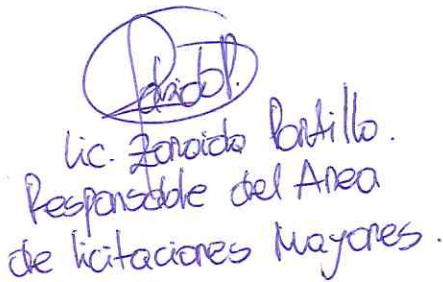 Lic. Zoraida Portillo.
Responsable del Area
de licitaciones Mayores.